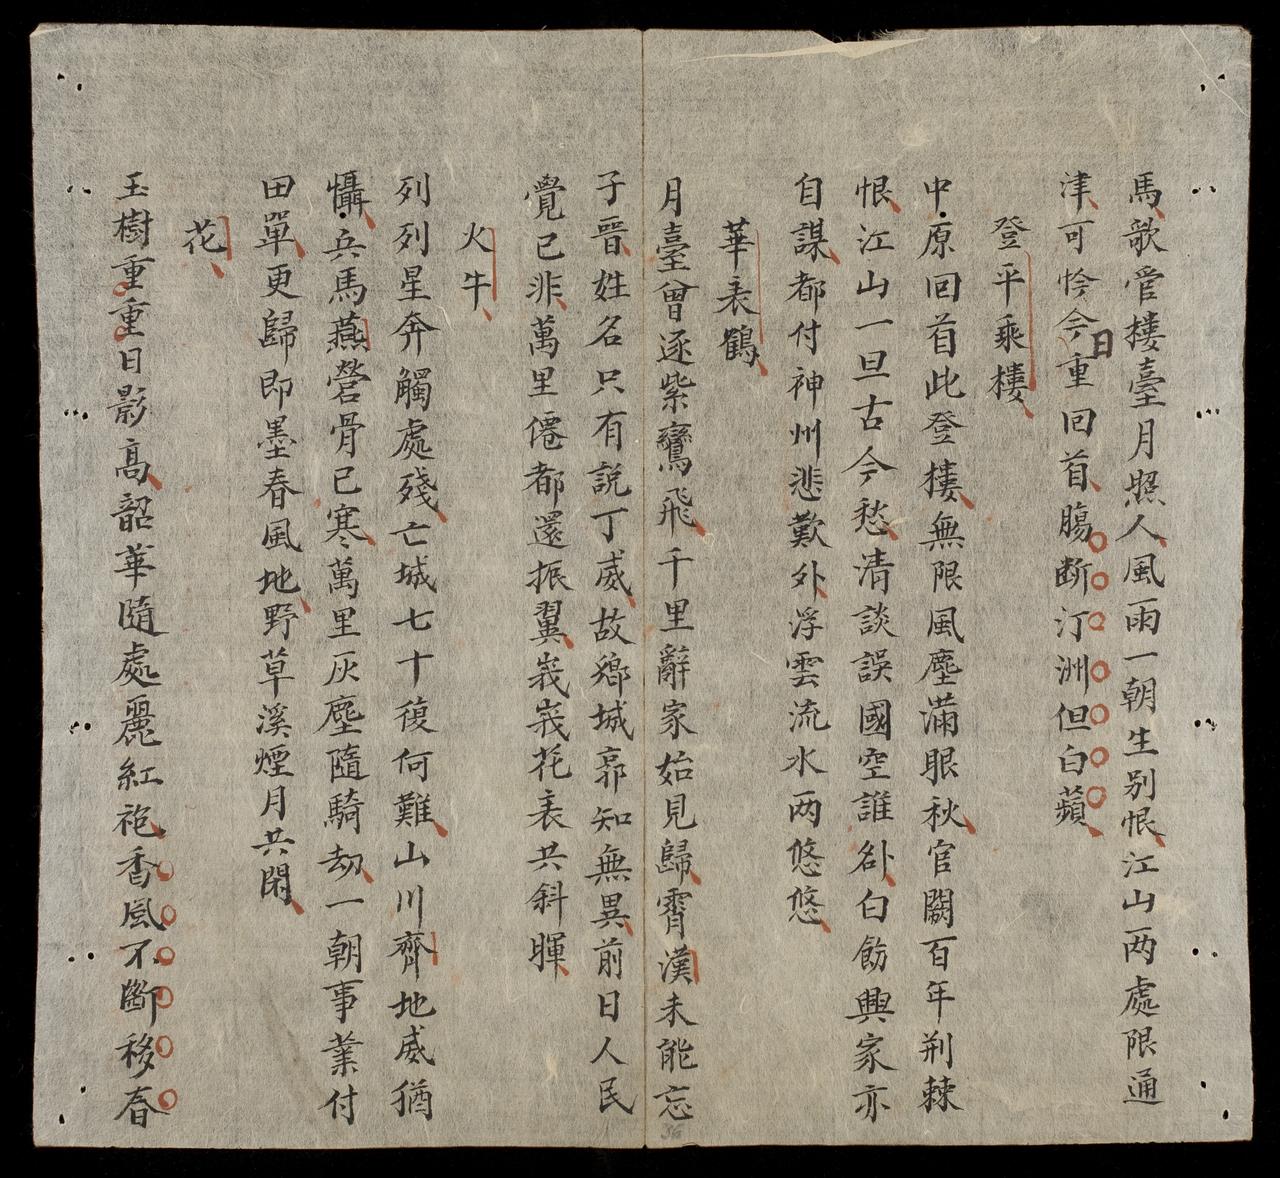 馬歌管樓臺月照人風雨一朝生别恨江山两處限通
津可怜今日重回首腸断汀洲但白蘋
登平乘樓
中原回首此登樓無限風塵滿眼秋宫闕百年荆棘
恨江山一旦古今愁清談誤國空誰咎白飭興家亦
自謀都付神州悲歎外浮雲流水两悠悠
華表鶴
月臺曾逐紫鸞飛千里辭家始見歸霄漢未能忘
子晉姓名只有説丁威故鄉城郭知無異前日人民
覺已非萬里僊都還振翼峩峩花表共斜暉
火牛
列列星奔觸處殘亡城七十復何難山川齊地威猶
懾兵馬燕營骨已寒萬里灰塵隨騎劫一朝事業付
田單更歸即墨春風地野草溪煙月共閑
花
玉樹重重日影高韶華隨處麗紅袍香風不斷移春